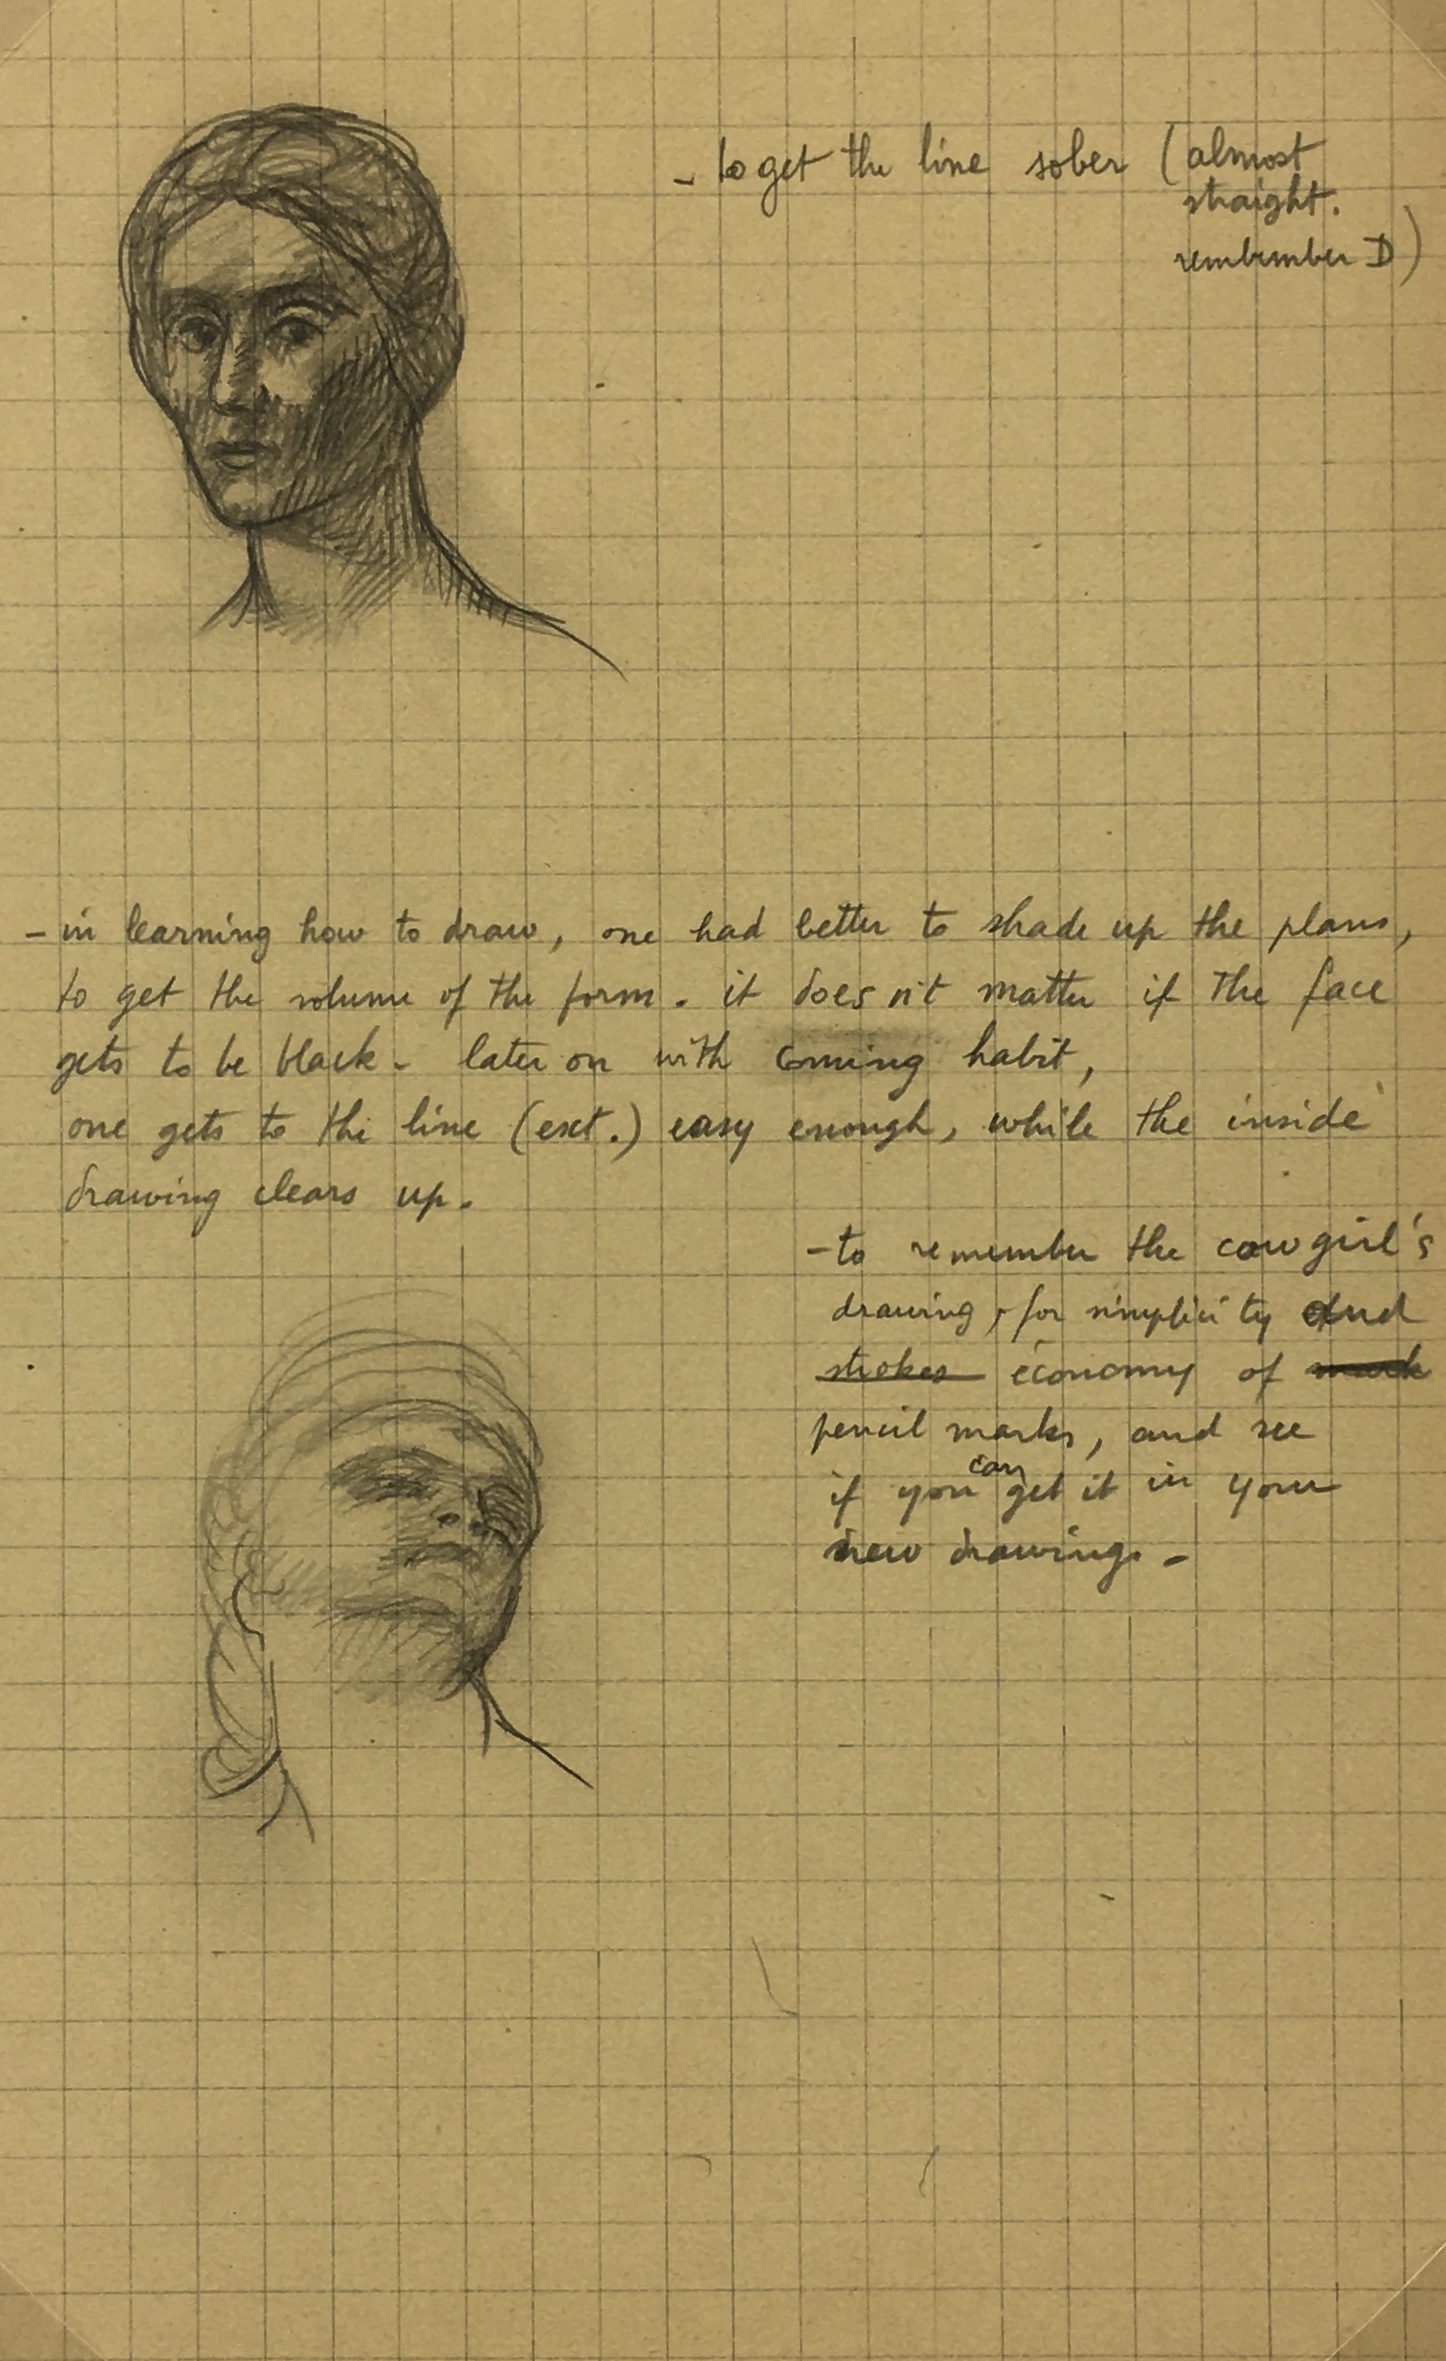 - to get the line sober (almost
straight.
rembember D)
- in learning how to draw, one had better to shade up the plans,
to get the volume of the form. it does n't matter if the face
gets to be black - later on with coming habit,
one gets to the line (ext.) easy enough, while the inside
drawing clears up.
- to remember the cowgirl's
drawing, for simplicity and
strokes economy of mark
pencil marks, and see
if you can get it in your
new drawings -